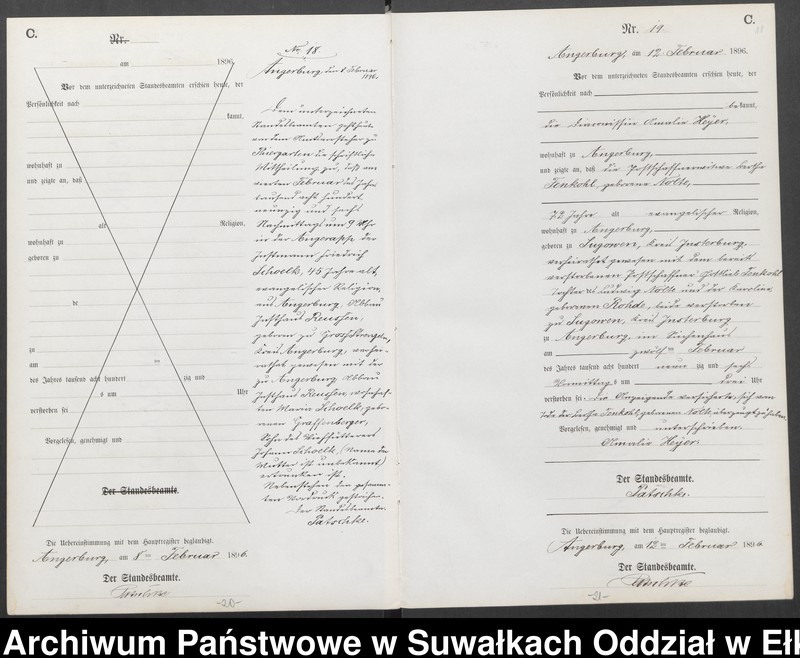 C.
Nr.
am 1896.
Vor dem unterzeichneten Standesbeamten erschien heute, der
Persönlichkeit nach
kannt,
wohnhaft zu
und zeigte an, daß
alt Religion,
wohnhaft zu
geboren zu
zu
am
des Jahres tausend acht hundert zig und
s um Uhr
verstorben sei
Vorgelesen, genehmigt und
Der Standesbeamte.
Die Uebereinstimmung mit dem Hauptregister beglaubigt.
Angerburg, am 8ten Februar 1896.
Der Standesbeamte.
Patschke
-20-
No 18.
Angerburg, den 8. Februar
1896.
Dem unterzeichneten
Standesbeamten geht heute
von dem Amtsvorsteher zu
Thiergarten die schriftliche
Mittheilung zu, daß am
vierten Februar des Jahres
tausend acht hundert
neunzig und sechs
Nachmittags um 9 Uhr
in der Angerapp der
Instmann Friedrich
Schoelk, 45 Jahre alt,
evangelischer Religion,
aus Angerburg, Abbau
Gutshaus Reussen,
geboren zu Gross Strengeln,
Kreis Angerburg, verhei-
rathet gewesen mit der
zu Angerburg Abbau
Reussen, wohnhaf-
ten Maria Schoelk, gebo-
renen Graffenberger,
Sohn des
Johann Schoelk (Name der
Mutter ist unbekannt)
ertrunken ist.
Nebenstehender gesamm-
ten Vordruck gestrichen.
Der Standesbeamte.
Patschke.
C.
Nr. 19
Angerburg, am 12. Februar 1896.
Vor dem unterzeichneten Standesbeamten erschien heute, der
Persönlichkeit nach
bekannt,
die Diaconissin Amalie Heyer,
wohnhaft zu Angerburg,
und zeigte an, daß die Postschaffnerwitwe Bertha
Tenkohl, geborene Nolte,
72 Jahre alt evangelischer Religion,
wohnhaft zu Angerburg,
geboren zu Lugowen, Kreis Insterburg,
verheirathet gewesen mit dem bereits
verstorbenen Postschaffner Gottlieb Tenkohl
Tochter des Ludwig Nolte und der Karoline,
geborenen Rohde, beide verstorben
zu Lugowen, Kreis Insterburg
zu Angerburg, im Siechenhaus
am zwölften Februar
des Jahres tausend acht hundert neunzig und sechs
Vormittags um drei Uhr
verstorben sei. Die Anzeigende versicherte, sich vom
Tode der Bertha Tenkohl, geborenen Nolte, überzeugt zu haben.
Vorgelesen, genehmigt und unterschrieben
Amalie Heyer
Der Standesbeamte.
Patschke.
Die Uebereinstimmung mit dem Hauptregister beglaubigt.
Angerburg, am 12ten Februar 1896
Der Standesbeamte.
Patschke
-21-
Archiwum Państwowe w Suwałkach Oddział w Ełk